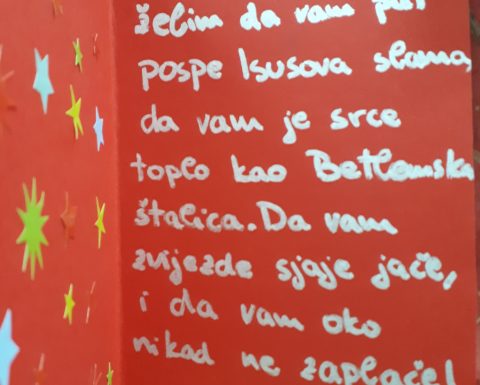 želim da vam put
pospe Isusova slama,
da vam je srce
toplo kao Betlemska
štalica. Da vam
zvijezde sjaje jače,
i da vam oko
nikad ne zaplače!